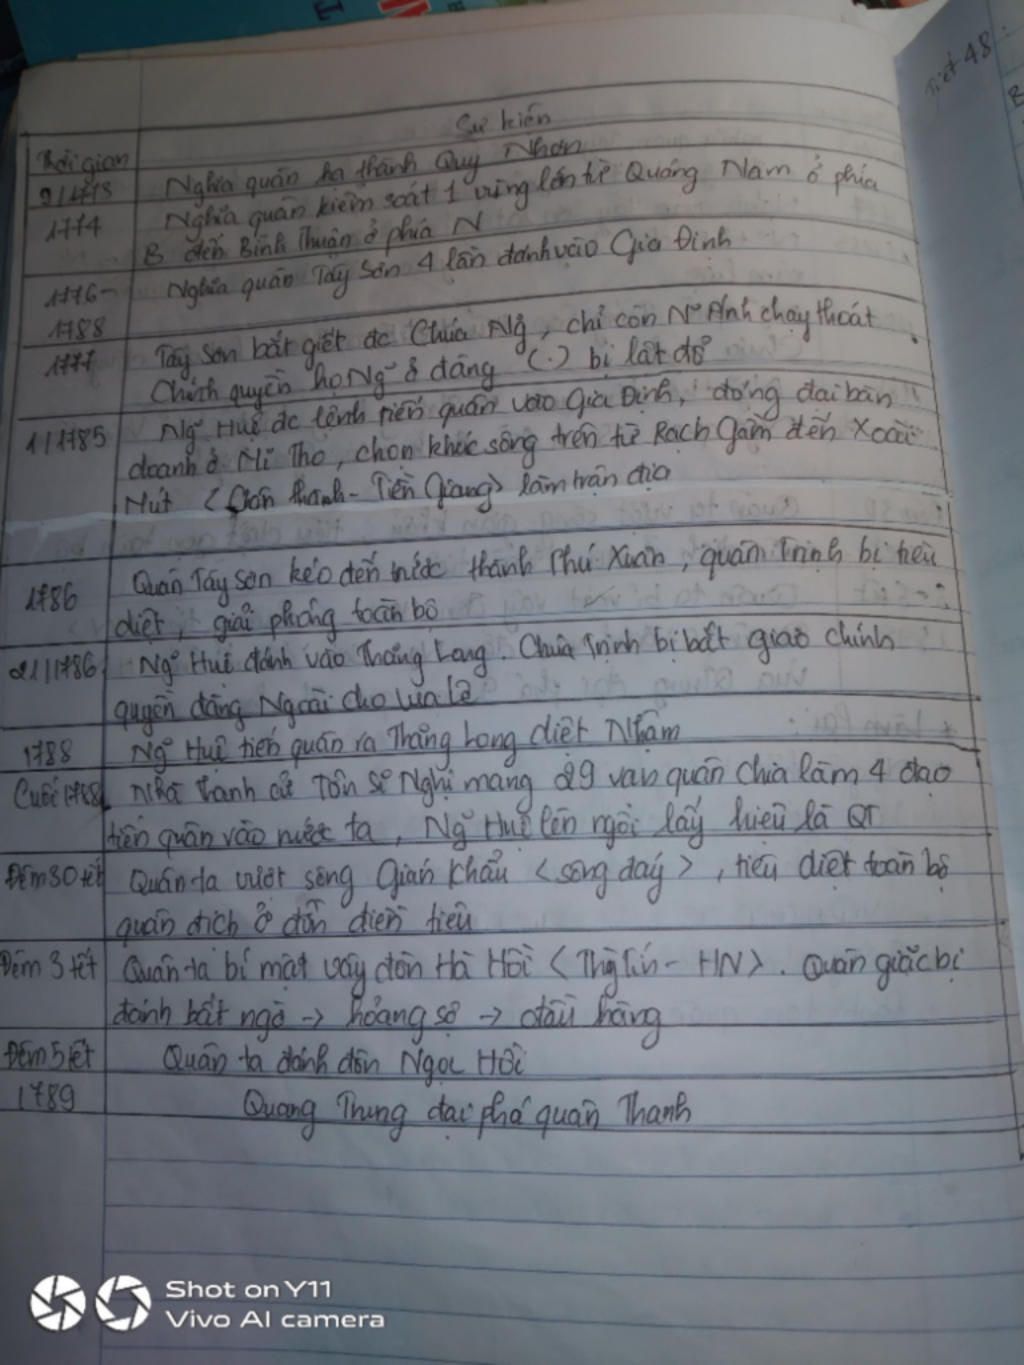 Tiết 48:
Sự kiện
Thời gian
9/1773 Nghĩa quân hạ thành Quy Nhơn
1774 Nghĩa quân kiểm soát 1 vùng lớn từ Quảng Nam ở phía
B đến Bình Thuận ở phía N
1776- Nghĩa quân Tây Sơn 4 lần đánh vào Gia Định
1788
1777 Tây Sơn bắt giết đc Chúa Ng̃, chỉ còn Ng̃ Ánh chạy thoát
Chính quyền họ Ng̃ ở đàng (.) bị lật đổ
1/1785 Ng̃ Huệ đc lệnh tiến quân vào Gia Định, đóng đại bản
doanh ở Mĩ Tho, chọn khúc sông trên từ Rạch Gầm đến Xoài
Mút < thành - Tiền Giang> làm trận địa
1786 Quân Tây Sơn kéo đến trước thành Phú Xuân, quân Trịnh bị tiêu
diệt, giải phóng toàn bộ
21/1786 Ng̃ Huệ đánh vào Thăng Long. Chúa Trịnh bị bắt giao chính
quyền đàng Ngoài cho vua Lê
1788 Ng̃ Huệ tiến quân ra Thăng Long diệt Nhậm
Cuối 1788 Nhà Thanh cử Tôn Sĩ Nghị mang 29 vạn quân chia làm 4 đạo
tiến quân vào nước ta, Ng̃ Huệ lên ngôi lấy hiệu là QT
Đêm 30 tết Quân ta vượt sông Gián Khẩu <sông đáy>, tiêu diệt toàn bộ
quân địch ở đồn điền tiêu
Đêm 3 tết Quân ta bí mật vây đồn Hà Hồi <Thg Tín - HN>. Quân giặc bị
đánh bất ngờ → hoảng sợ → đầu hàng
Đêm 5 tết Quân ta đánh đồn Ngọc Hồi
1789 Quang Trung đại phá quân Thanh
Shot on Y11
Vivo AI camera